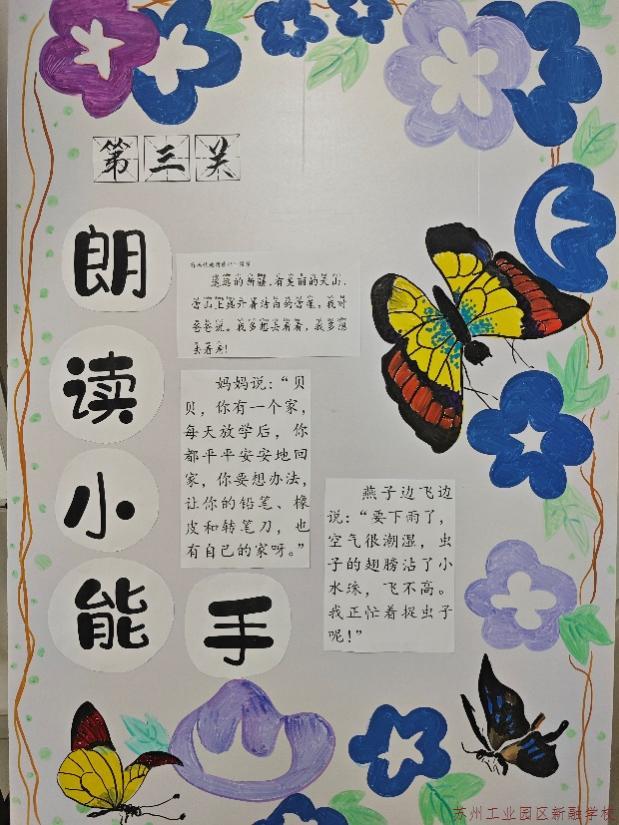 第三关
朗
读
小
能
手
遥远的新疆，有美丽的天山，
爸爸说。我多想去看看，我多想
去看看！
妈妈说：“贝
贝，你有一个家，
每天放学后，你
都平平安安地回
家，你要想办法，
让你的铅笔、橡
皮和转笔刀，也
有自己的家呀。”
燕子边飞边
说：“要下雨了，
空气很潮湿，虫
子的翅膀沾了小
水珠，飞不高。
我正忙着捉虫子
呢！”
苏州工业园区新融学校